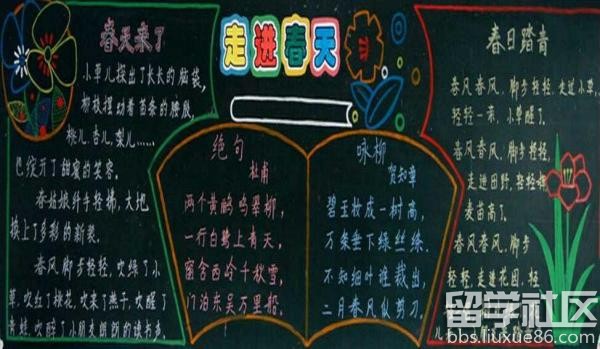 走进春天
春天来了
小草儿探出了长长的脑袋,
柳枝摆动着苗条的腰肢,
桃儿.杏儿.梨儿……
已绽开了甜蜜的笑容.
春姑娘纤手轻拂,大地
换上了多彩的新装.
春风,脚步轻轻,吹绿了小
草,吹红了樱花,吹来了燕子,吹醒了
青蛙,吹醉了小朋友朗朗的读书声.
绝句
杜甫
两个黄鹂鸣翠柳,
一行白鹭上青天,
窗含西岭千秋雪,
门泊东吴万里船.
咏柳
贺知章
碧玉妆成一树高,
万条垂下绿丝绦.
不知细叶谁裁出,
二月春风似剪刀.
春日踏青
春风春风,脚步轻轻,走过小草,
轻轻一亲,小草醒了.
春风春风,脚步轻轻,
走进田野,轻轻
麦苗高了.
春风春风,脚步
轻轻,走进花园,轻
留学社区
bbs.liuxue86.com